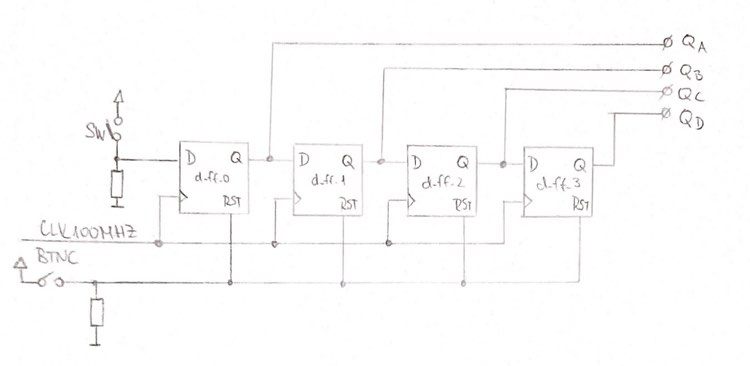 QA
QB
QC
QD
SW
D Q
d_ff_0
RST
D Q
d_ff_1
RST
D Q
d_ff_2
RST
D Q
d_ff_3
RST
CLK100MHZ
BTNC